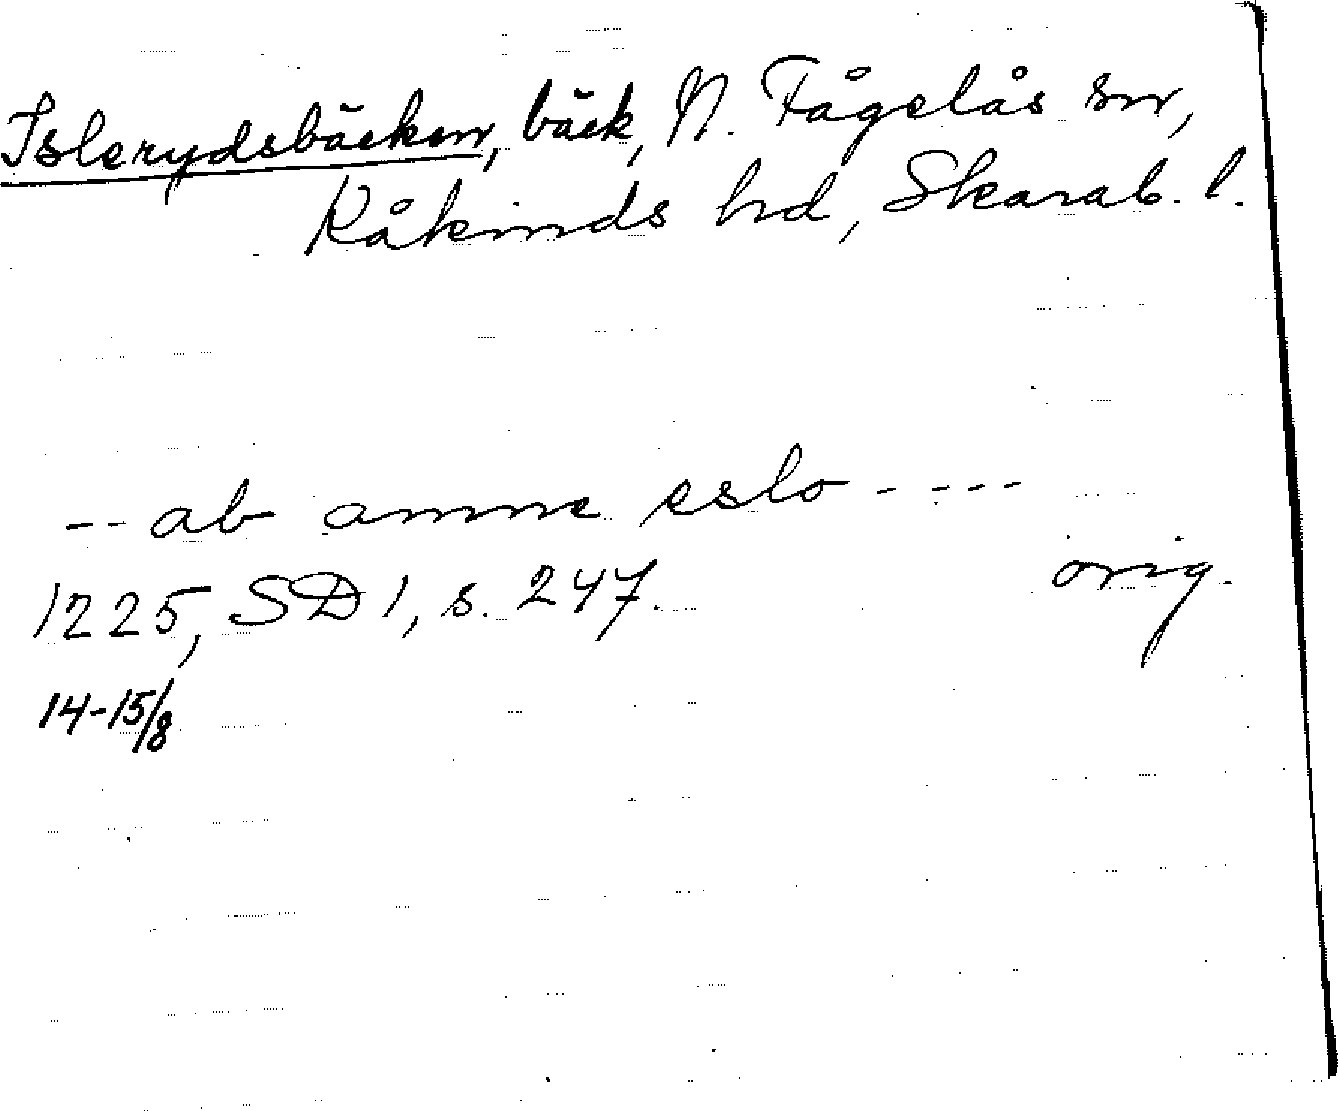 Islerydsbäcken, bäck, N. Fågelås sn,
Kåkinds hd, Skarab. l.
-- ab amne eslo ----
1225, SD 1, s. 247. orig.
14-15/8